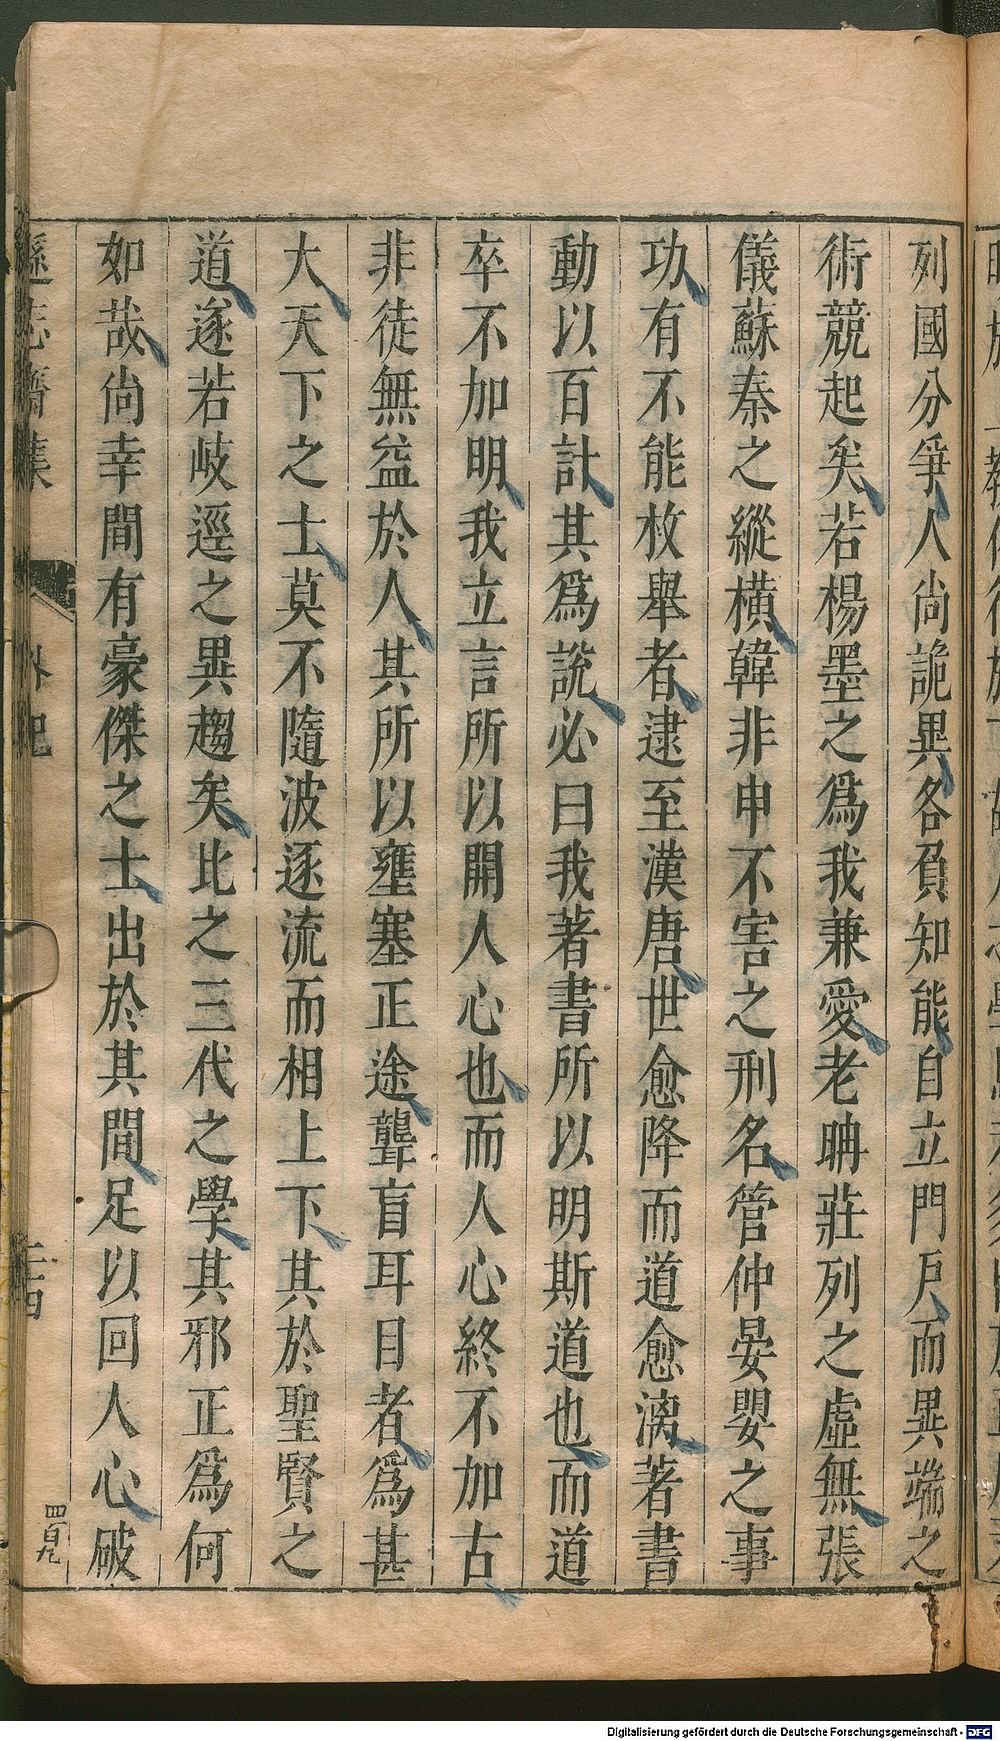 列國分爭人尚詭異各負知能自立門戶而異端之
術競起矣若楊墨之爲我兼愛老聃莊列之虛無張
儀蘇秦之縱橫韓非申不害之刑名管仲晏嬰之事
功有不能枚舉者逮至漢唐世愈降而道愈漓著書
動以百計其爲說必曰我著書所以明斯道也而道
卒不加明我立言所以開人心也而人心終不加古
非徒無益於人其所以壅塞正途聾盲耳目者爲甚
大天下之士莫不隨波逐流而相上下其於聖賢之
道遂若岐逕之異趨矣比之三代之學其邪正爲何
如哉尚幸間有豪傑之士出於其間足以回人心破
遜志齋集
外紀
二十四
四百九
Digitalisierung gefördert durch die Deutsche Forschungsgemeinschaft - DFG